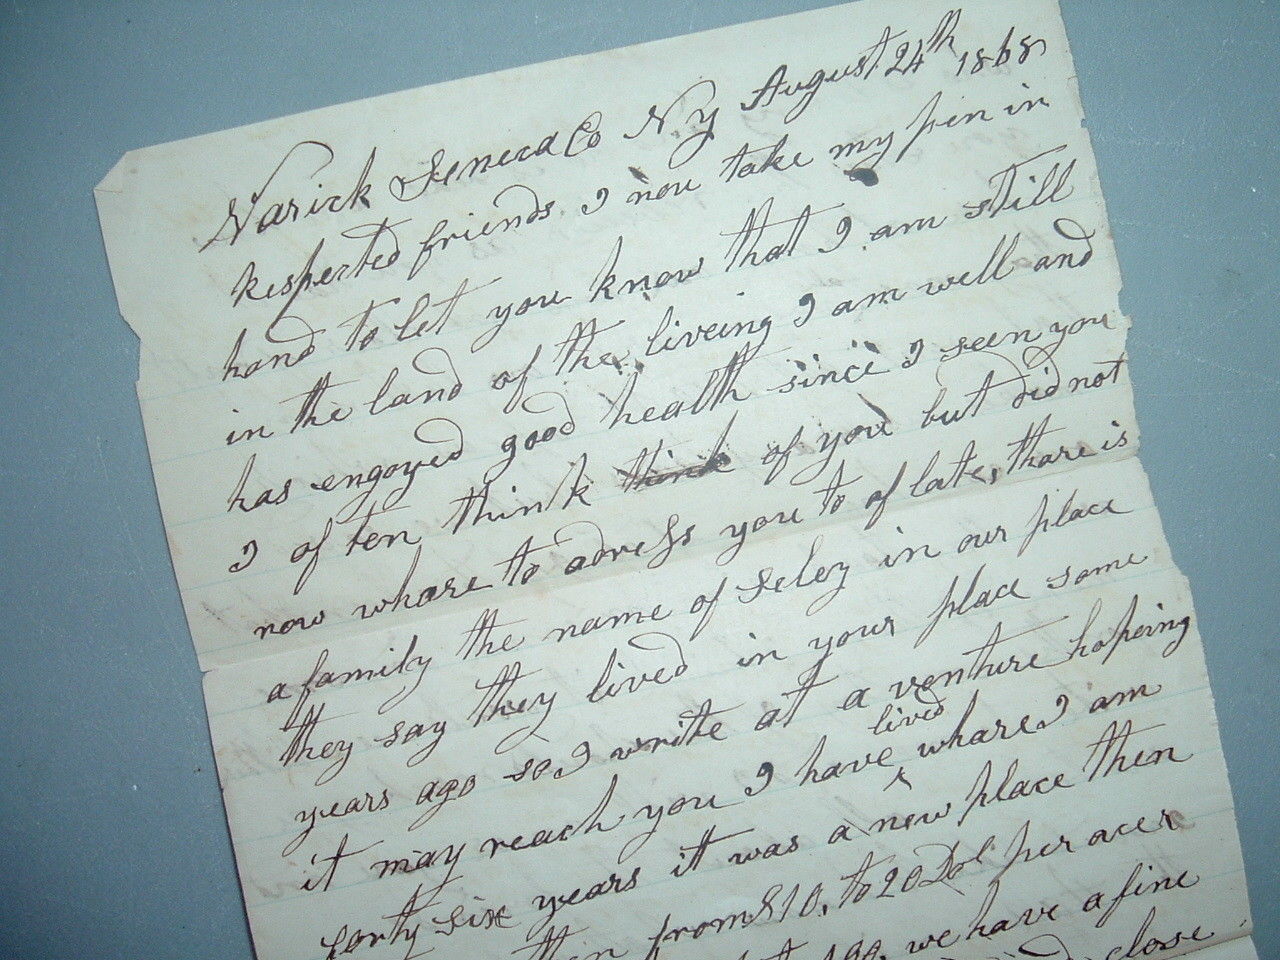 Varick Seneca Co N y August 24th 1868
Respected friends. I now take my pen in
hand to let you know that I am still
in the land of the liveing I am well and
has engoyed good health since I seen you
I of ten think think of you but did not
now whare to adress you to of late, thare is
a family the name of Seley in our place
they say they lived in your place some
years ago so I write at a venture hopeing
it may reach you I have lived whare I am
forty six years it was a new place then
from $10, to 20 Dol per acer
we have a fine
close